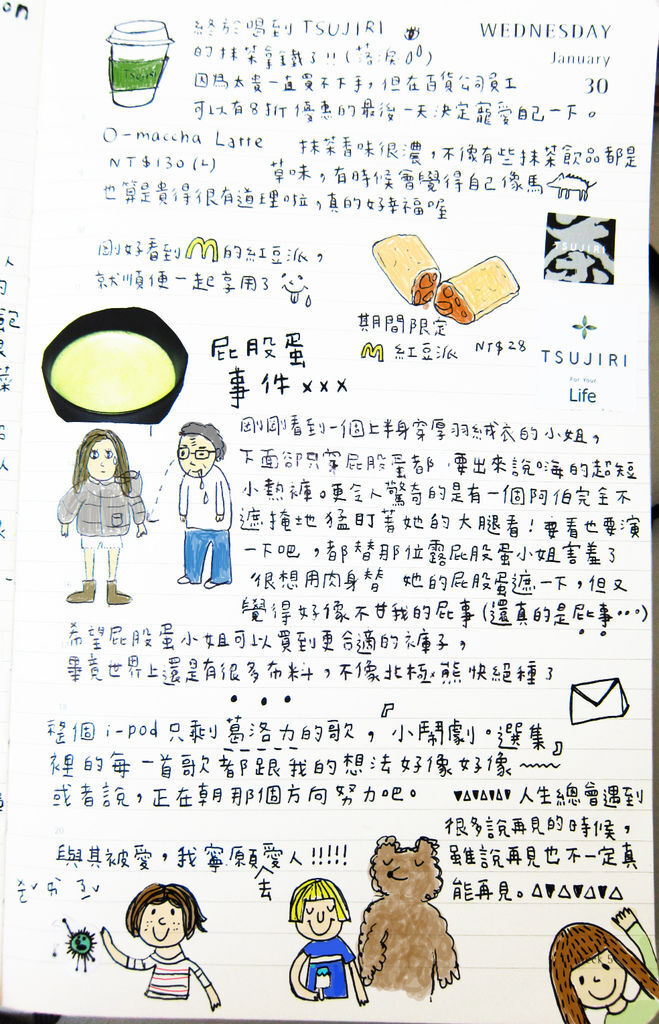 on
WEDNESDAY
January
30
終於喝到 TSUJIRI
的抹茶拿鐵了!!(落淚)
因為太貴一直買不下手，但在百貨公司員工
可以有8折優惠的最後一天決定寵愛自己一下。
O-maccha Latte
NT$130 (L)
抹茶香味很濃，不像有些抹茶飲品都是
草味，有時候會覺得自己像馬
也算是貴得很有道理啦，真的好幸福喔
TSUJIRI
剛好看到 M 的紅豆派，
就順便一起享用了
期間限定
M 紅豆派 NT$28
TSUJIRI
TSUJIRI
For Your
Life
屁股蛋
事件 xxx
剛剛看到一個上半身穿厚羽絨衣的小姐，
下面卻只穿屁股蛋都要出來說嗨的超短
小熱褲。更令人驚奇的是有一個阿伯完全不
遮掩地猛盯著她的大腿看！要看也要演
一下吧，都替那位露屁股蛋小姐害羞了
很想用肉身替她的屁股蛋遮一下，但又
覺得好像不甘我的屁事(還真的是屁事…)
希望屁股蛋小姐可以買到更合適的褲子，
畢竟世界上還是有很多布料，不像北極熊快絕種了
• • •
整個 i-pod 只剩葛洛力的歌，『小鬧劇。選集』
裡的每一首歌都跟我的想法好像好像~~~
或者說，正在朝那個方向努力吧。
▼▲▼▲▼▲▼ 人生總會遇到
很多說再見的時候，
雖說再見也不一定真
能再見。△▼△▼△▼△
與其被愛，我寧願去愛人!!!!!